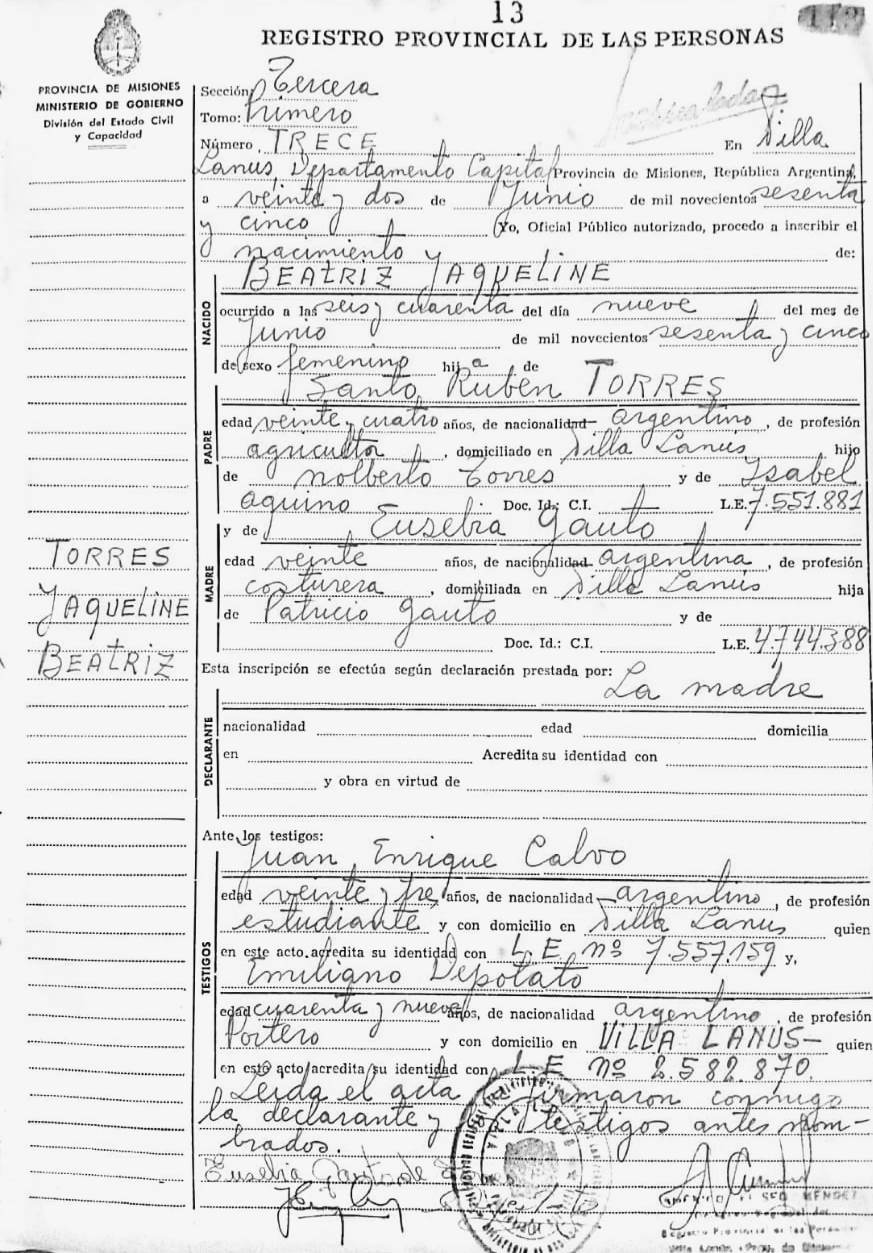 13
REGISTRO PROVINCIAL DE LAS PERSONAS
113
PROVINCIA DE MISIONES
MINISTERIO DE GOBIERNO
División del Estado Civil
y Capacidad
Sección: Tercera
Tomo: Primero
Número TRECE En Villa
Lanus, Departamento Capital Provincia de Misiones, República Argentina,
a veinte y dos de Junio de mil novecientos sesenta
y cinco Yo, Oficial Público autorizado, procedo a inscribir el
nacimiento de:
BEATRIZ JAQUELINE
NACIDO
ocurrido a las seis y cuarenta del día nueve del mes de
Junio de mil novecientos sesenta y cinco
de sexo femenino hija de
Santo Ruben TORRES
PADRE
edad veinte y cuatro años, de nacionalidad argentino, de profesión
agricultor, domiciliado en Villa Lanus hijo
de Nolberto Torres y de Isabel
Aquino Doc. Id.: C.I. L.E. 7.551.881
y de Eusebia Gauto
MADRE
edad veinte años, de nacionalidad argentina, de profesión
costurera, domiciliada en Villa Lanus hija
de Patricio Gauto y de
Doc. Id.: C.I. L.E. 4.744.388
TORRES
JAQUELINE
BEATRIZ
Esta inscripción se efectúa según declaración prestada por:
La madre
DECLARANTE
nacionalidad edad domicilia
en Acredita su identidad con
y obra en virtud de
Ante los testigos:
Juan Enrique Calvo
TESTIGOS
edad veinte y tre años, de nacionalidad argentino, de profesión
estudiante y con domicilio en Villa Lanus quien
en este acto acredita su identidad con L.E. nº 7.557.159 y,
Emiliano Depotato
edad cuarenta y nueve años, de nacionalidad argentino, de profesión
Portero y con domicilio en VILLA LANUS- quien
en esto acto acredita su identidad con L.E. nº 2.582.870.
Leida el acta firmaron conmigo
la declarante y testigos antes nom-
brados.
Eusebia Gauto de